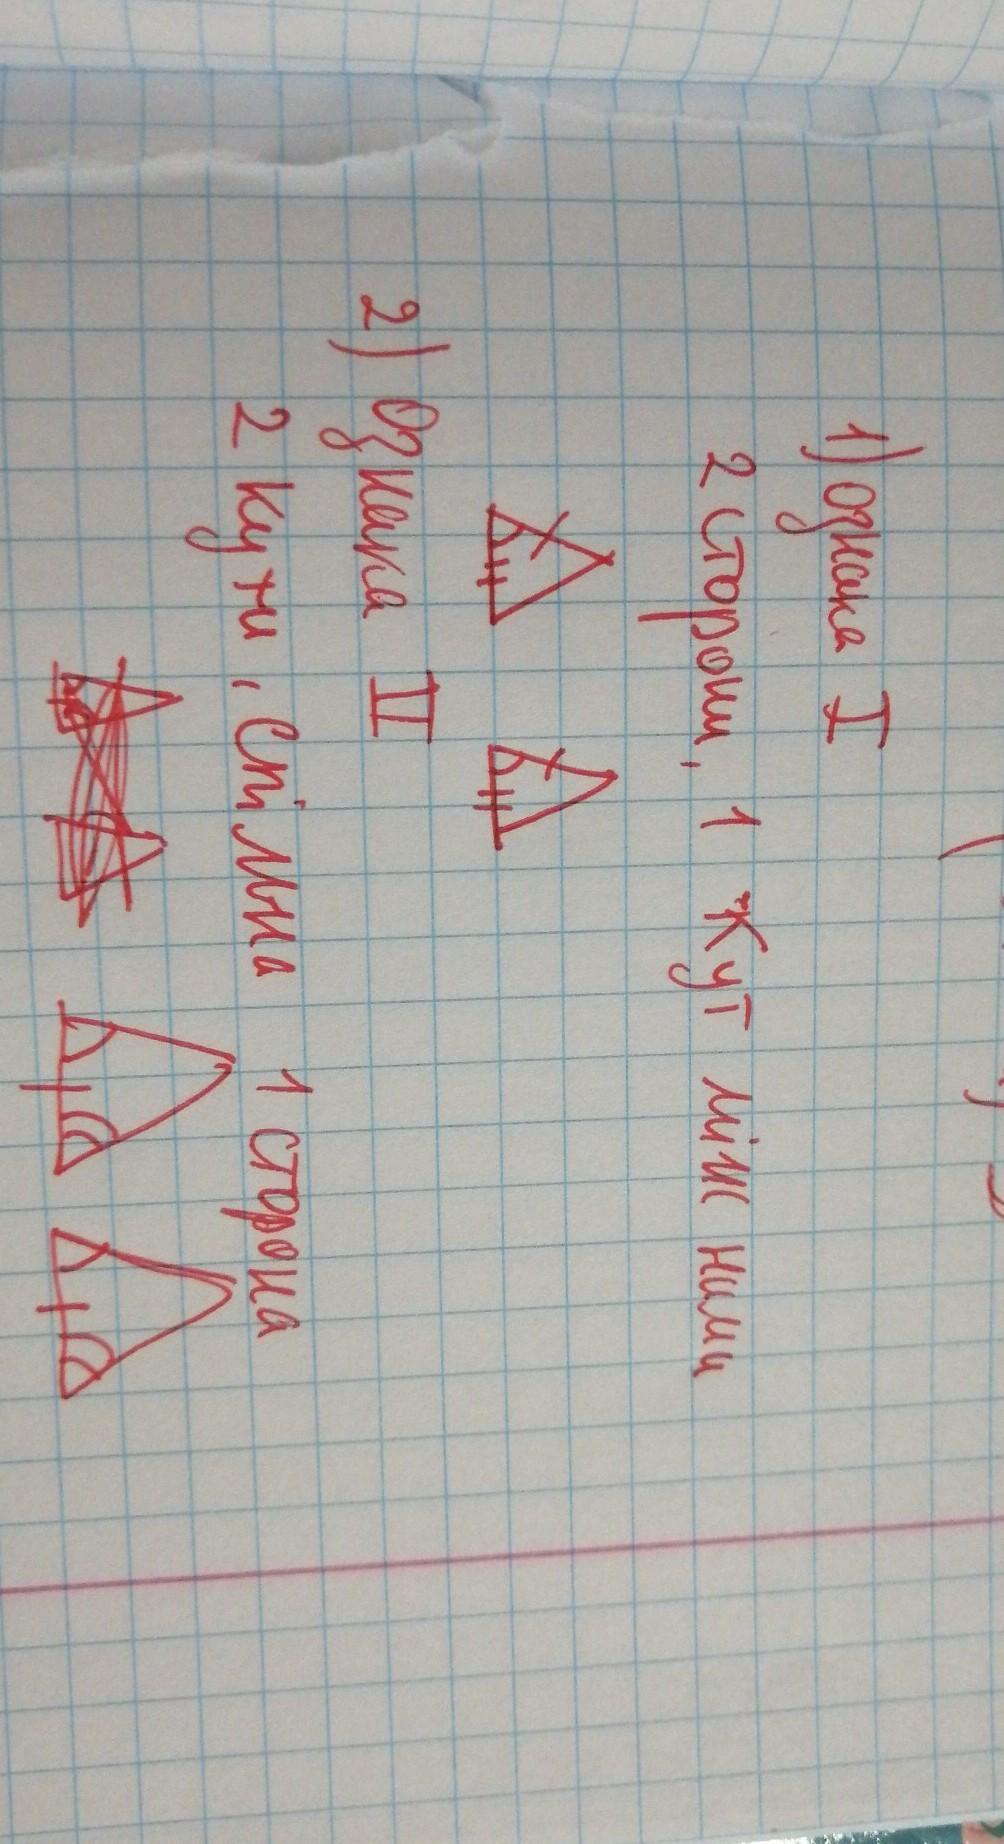 1) Ознака I
2 сторони, 1 кут між ними
2) Ознака II
2 кути, спільна 1 сторона